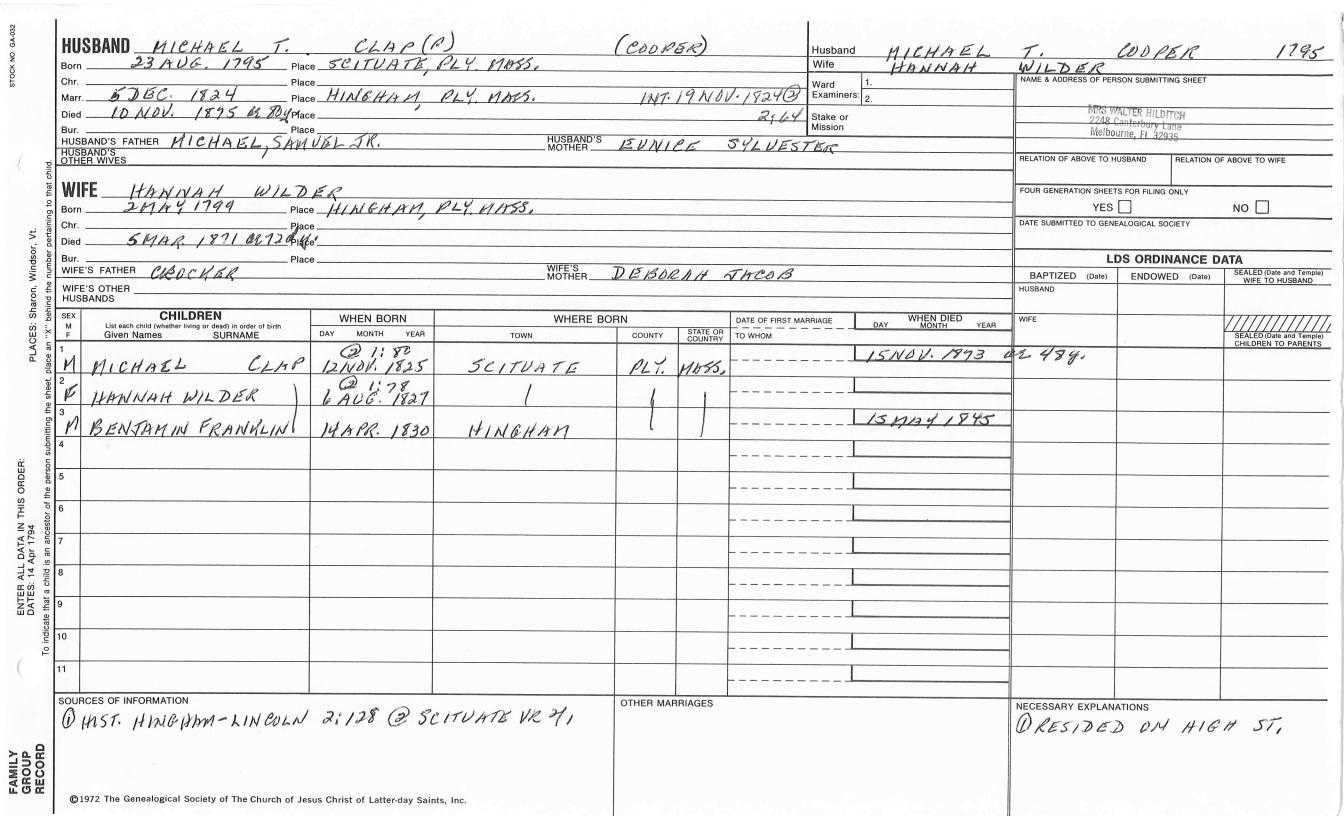 STOCK NO. GA-032
HUSBAND MICHAEL T. CLAP(P) (COOPER)
Born 23 AUG. 1795 Place SCITUATE, PLY. MASS.
Chr. Place
Marr. 5 DEC. 1824 Place HINGHAM, PLY. MASS. INT. 19 NOV. 1824 ②
Died 10 NOV. 1875 Æ 80y Place 2:64
Bur. Place
HUSBAND'S FATHER MICHAEL, SAMUEL JR. HUSBAND'S MOTHER EUNICE SYLVESTER
HUSBAND'S OTHER WIVES
Husband MICHAEL T. COOPER 1795
Wife HANNAH WILDER
Ward Examiners: 1.
2.
Stake or Mission
NAME & ADDRESS OF PERSON SUBMITTING SHEET
MRS WALTER HILDITCH
2248 Canterbury Lane
Melbourne, Fl. 32935
RELATION OF ABOVE TO HUSBAND RELATION OF ABOVE TO WIFE
FOUR GENERATION SHEETS FOR FILING ONLY
YES NO
DATE SUBMITTED TO GENEALOGICAL SOCIETY
WIFE HANNAH WILDER
Born 2 MAY 1799 Place HINGHAM, PLY. MASS.
Chr. Place
Died 5 MAR 1871 Æ 72 Place
Bur. Place
WIFE'S FATHER CROCKER WIFE'S MOTHER DEBORAH JACOB
WIFE'S OTHER HUSBANDS
LDS ORDINANCE DATA
BAPTIZED (Date) ENDOWED (Date) SEALED (Date and Temple) WIFE TO HUSBAND
HUSBAND
WIFE
SEALED (Date and Temple) CHILDREN TO PARENTS
SEX M F CHILDREN WHEN BORN WHERE BORN DATE OF FIRST MARRIAGE WHEN DIED
List each child (whether living or dead) in order of birth
Given Names SURNAME DAY MONTH YEAR TOWN COUNTY STATE OR COUNTRY TO WHOM DAY MONTH YEAR
② 1:80
1 M MICHAEL CLAP 12 NOV. 1825 SCITUATE PLY. MASS. 15 NOV. 1873 Æ 48y.
② 1:78
2 F HANNAH WILDER 6 AUG. 1827
3 M BENJAMIN FRANKLIN 14 APR. 1830 HINGHAM 15 MAY 1845
4
5
6
7
8
9
10
11
SOURCES OF INFORMATION
① HIST. HINGHAM-LINCOLN 2:128 ② SCITUATE VR
OTHER MARRIAGES
NECESSARY EXPLANATIONS
① RESIDED ON HIGH ST.
©1972 The Genealogical Society of The Church of Jesus Christ of Latter-day Saints, Inc.
FAMILY GROUP RECORD
ENTER ALL DATA IN THIS ORDER:
DATES: 14 Apr 1794
PLACES: Sharon, Windsor, Vt.
To indicate that a child is an ancestor of the person submitting the sheet, place an "X" behind the number pertaining to that child.